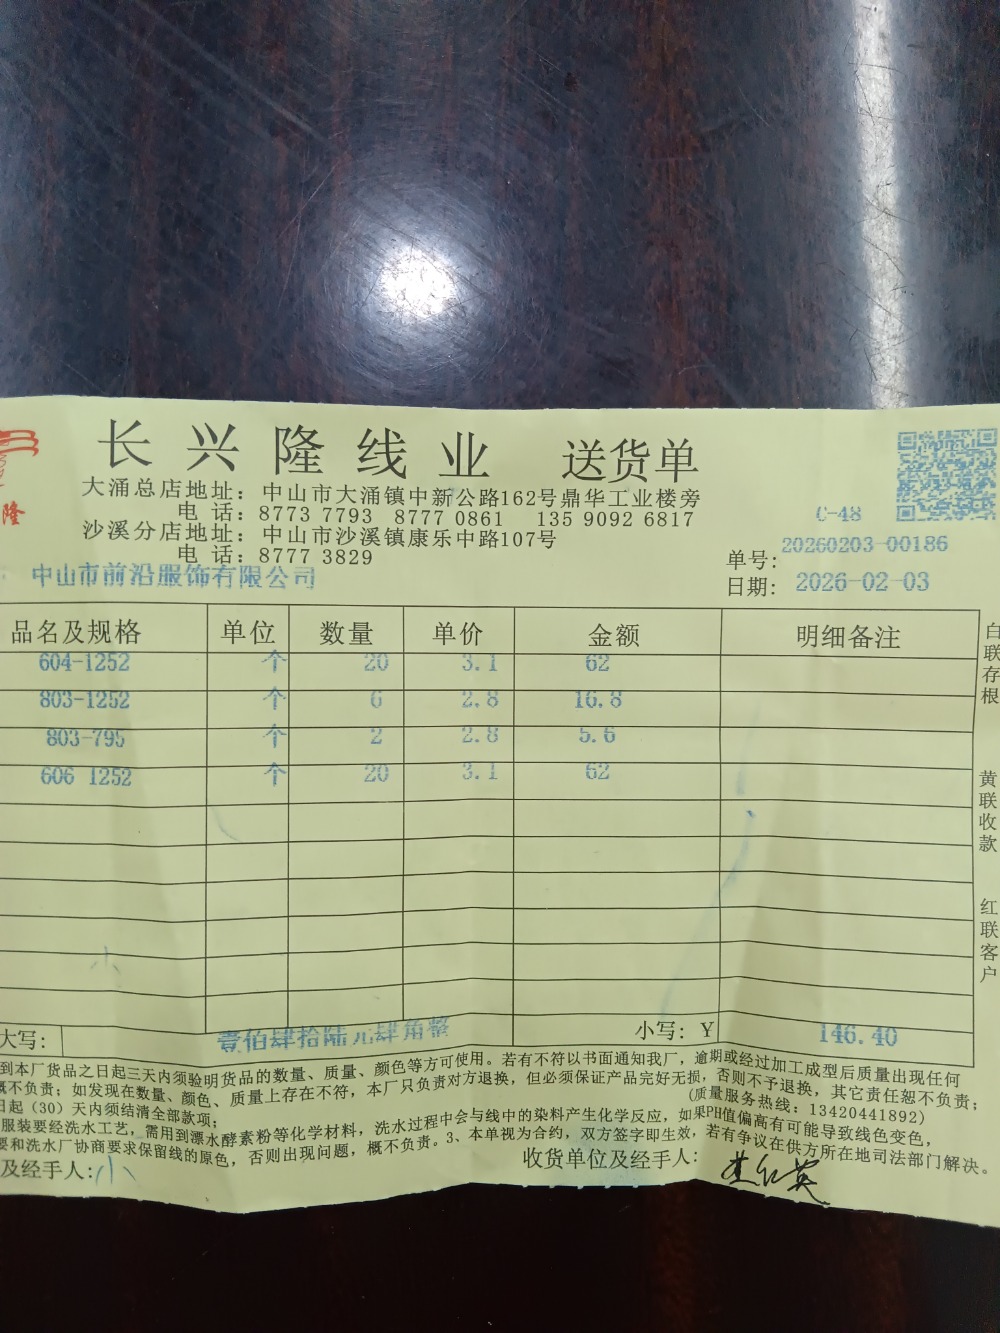 隆
长兴隆线业 送货单
大涌总店地址：中山市大涌镇中新公路162号鼎华工业楼旁
电 话：8773 7793 8777 0861 135 9092 6817
沙溪分店地址：中山市沙溪镇康乐中路107号
电 话：8777 3829
C-48
单号：20260203-00186
日期：2026-02-03
中山市前沿服饰有限公司
品名及规格 单位 数量 单价 金额 明细备注
604-1252 个 20 3.1 62
803-1252 个 6 2.8 16.8
803-795 个 2 2.8 5.6
606 1252 个 20 3.1 62
白联存根
黄联收款
红联客户
大写： 壹佰肆拾陆元肆角整 小写：Y 146.40
到本厂货品之日起三天内须验明货品的数量、质量、颜色等方可使用。若有不符以书面通知我厂，逾期或经过加工成型后质量出现任何
概不负责；如发现在数量、颜色、质量上存在不符，本厂只负责对方退换，但必须保证产品完好无损，否则不予退换，其它责任恕不负责；
日起（30）天内须结清全部款项； （质量服务热线：13420441892）
服装要经洗水工艺，需用到漂水酵素粉等化学材料，洗水过程中会与线中的染料产生化学反应，如果PH值偏高有可能导致线色变色，
要和洗水厂协商要求保留线的原色，否则出现问题，概不负责。3、本单视为合约，双方签字即生效，若有争议在供方所在地司法部门解决。
及经手人：小 收货单位及经手人：